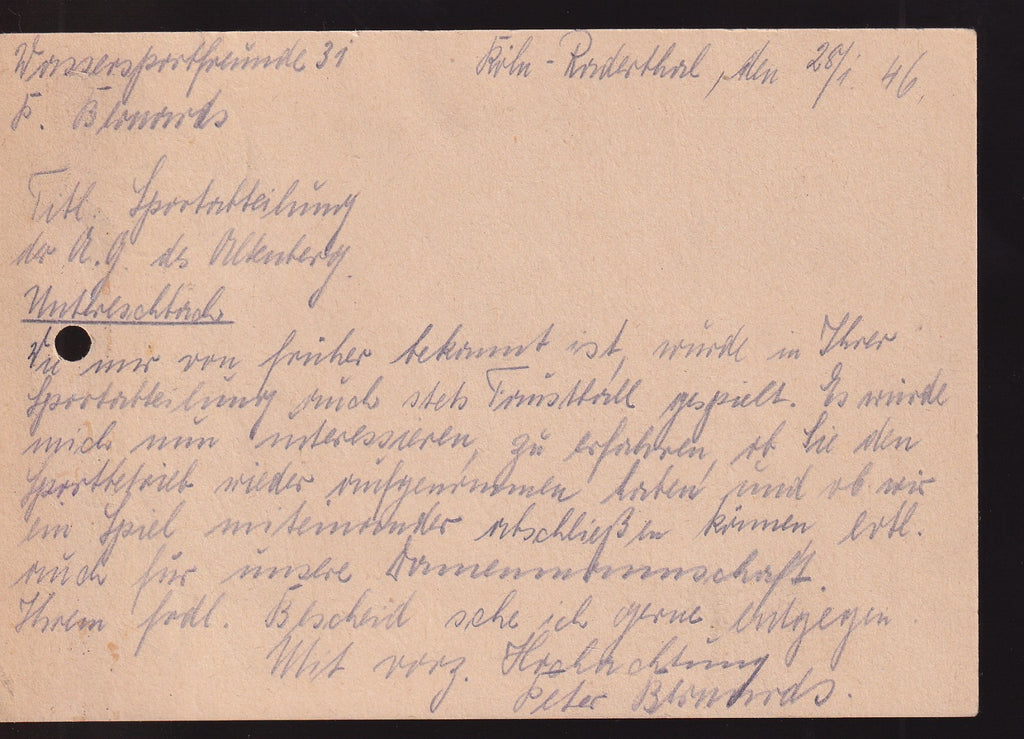 Wassersportfreunde 31 Köln-Raderthal, den 28/1. 46.
P. Bernards
Titl. Sportabteilung
der A.G. des Altenberg
Untereschbach
Wie mir von früher bekannt ist, wurde in Ihrer
Sportabteilung auch stets Faustball gespielt. Es würde
mich nun interessieren, zu erfahren, ob Sie den
Sportbetrieb wieder aufgenommen haben und ob wir
ein Spiel miteinander abschließen können, evtl.
auch für unsere Damenmannschaft.
Ihrem frdl. Bescheid sehe ich gerne entgegen
Mit vorz. Hochachtung
Peter Bernards.